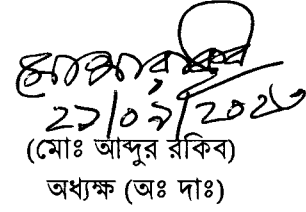 ২১/০৯/২০২৩
(মোঃ আব্দুর রকিব)
অধ্যক্ষ (অঃ দাঃ)